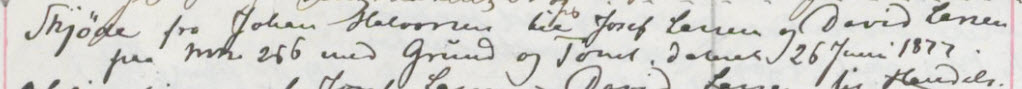 Skjøde fra Johan Halvorsen til Josef Larsen og David Larsen
paa Mno 256 med Grund og Tomt, dateret 26 Juni 1877.
Josef Larsen David Larsen Handels.